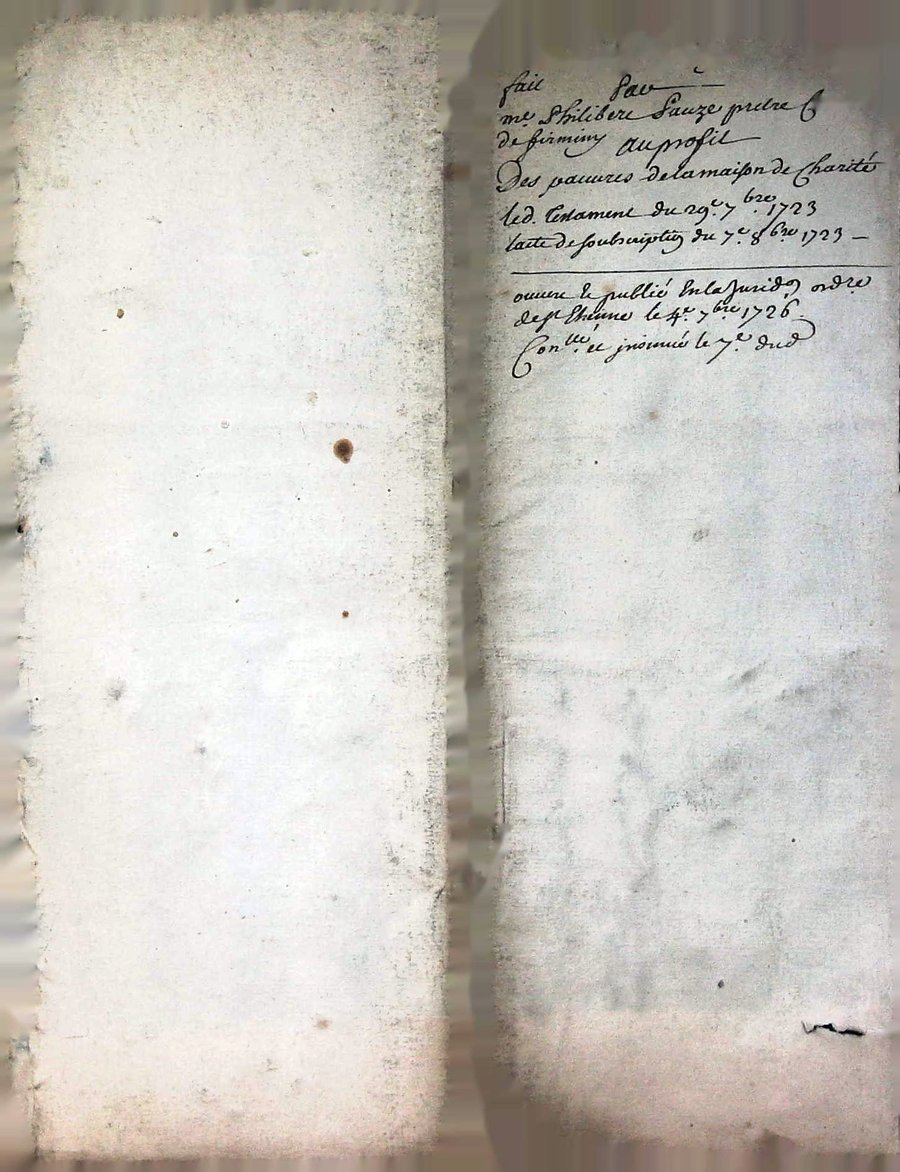 fait Par
me Philibert Sauze pretre C
de firminy au profit
Des pauures de la maison de Charité
led. Testament du 29e 7bre 1723
lacte de soubscription du 7e 8bre 1723
ouuert & publié En la Juridon ordre
de st Etienne le 4e 7bre 1726
Conllé et jnsinué le 7e dud